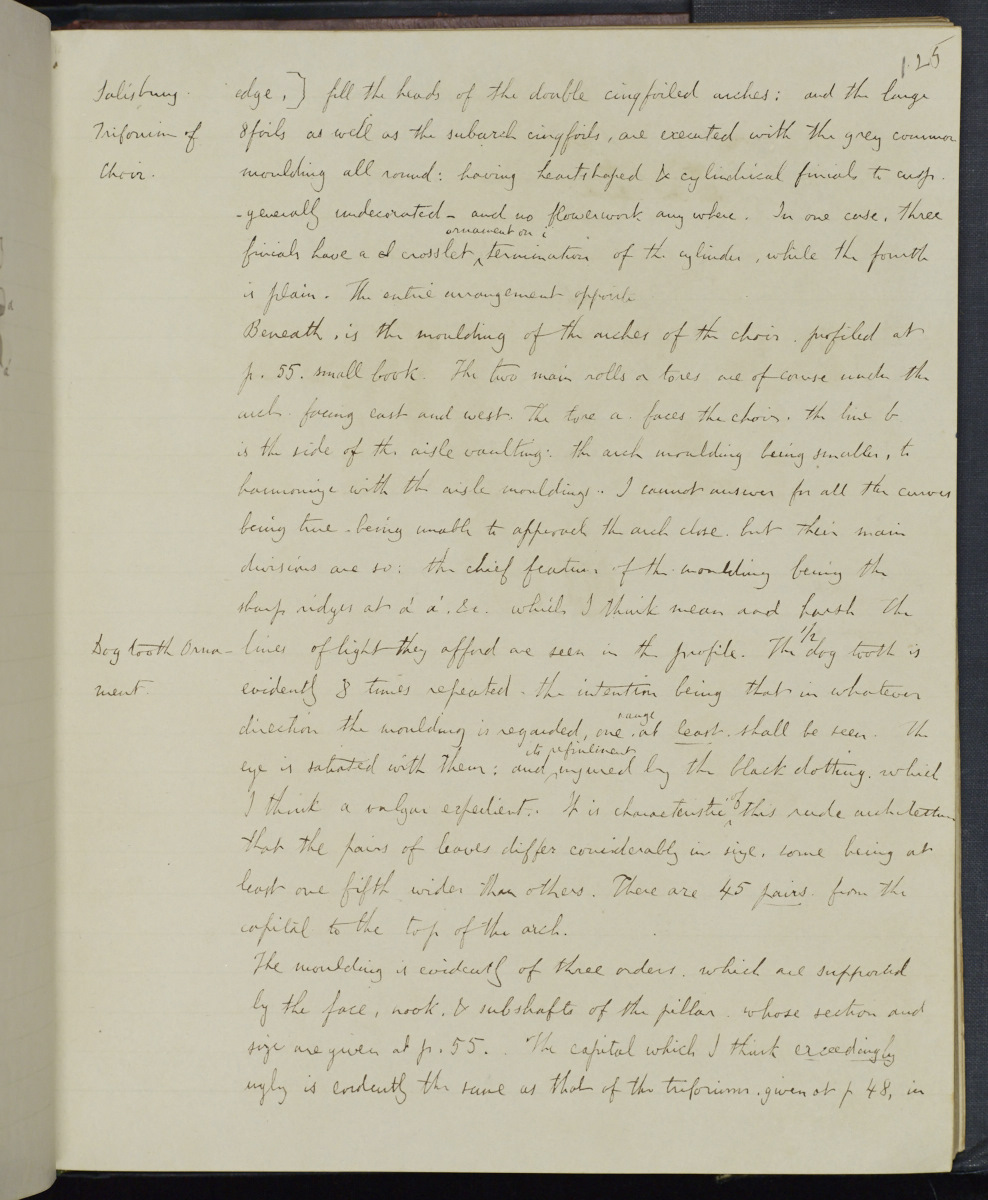 125
Salisbury.
Triforium of
Choir.
edge,] fill the heads of the double cinqfoiled arches: and the large
8foils as well as the subarch cinqfoils, are executed with the grey common
moulding all round: having heartshaped & cylindrical finials to cusp.
- generally undecorated - and no flowerwork any where. In one case, three
ornament on
finials have a crosslet termination of the cylinder, while the fourth
is plain. The entire arrangement opposite
Beneath, is the moulding of the arches of the choir. profiled at
p. 55. small book. The two main rolls or tores are of course under the
arch. facing east and west. The tore a. faces the choir. the line b
is the side of the aisle vaulting: the arch moulding being smaller, to
harmonize with the aisle mouldings. I cannot answer for all the curves
being true - being unable to approach the arch close. but their main
divisions are so: the chief feature of the moulding being the
sharp ridges at a' a'. &c. which I think mean and harsh the
Dog tooth Orna-
ment.
lines of light they afford are seen in the profile. The 1/2 dog tooth is
evidently 8 times repeated - the intention being that in whatever
direction the moulding is regarded, one range at least shall be seen. The
eye is satiated with them; and its refinement injured by the black dotting. which
I think a vulgar expedient. It is characteristic of this rude architecture
that the pairs of leaves differ considerably in size. some being at
least one fifth wider than others. There are 45 pairs from the
capital to the top of the arch.
The moulding is evidently of three orders. which are supported
by the face, nook, & subshafts of the pillar. whose section and
size are given at p. 55. The capital which I think exceedingly
ugly is evidently the same as that of the triforium. given at p 48, in